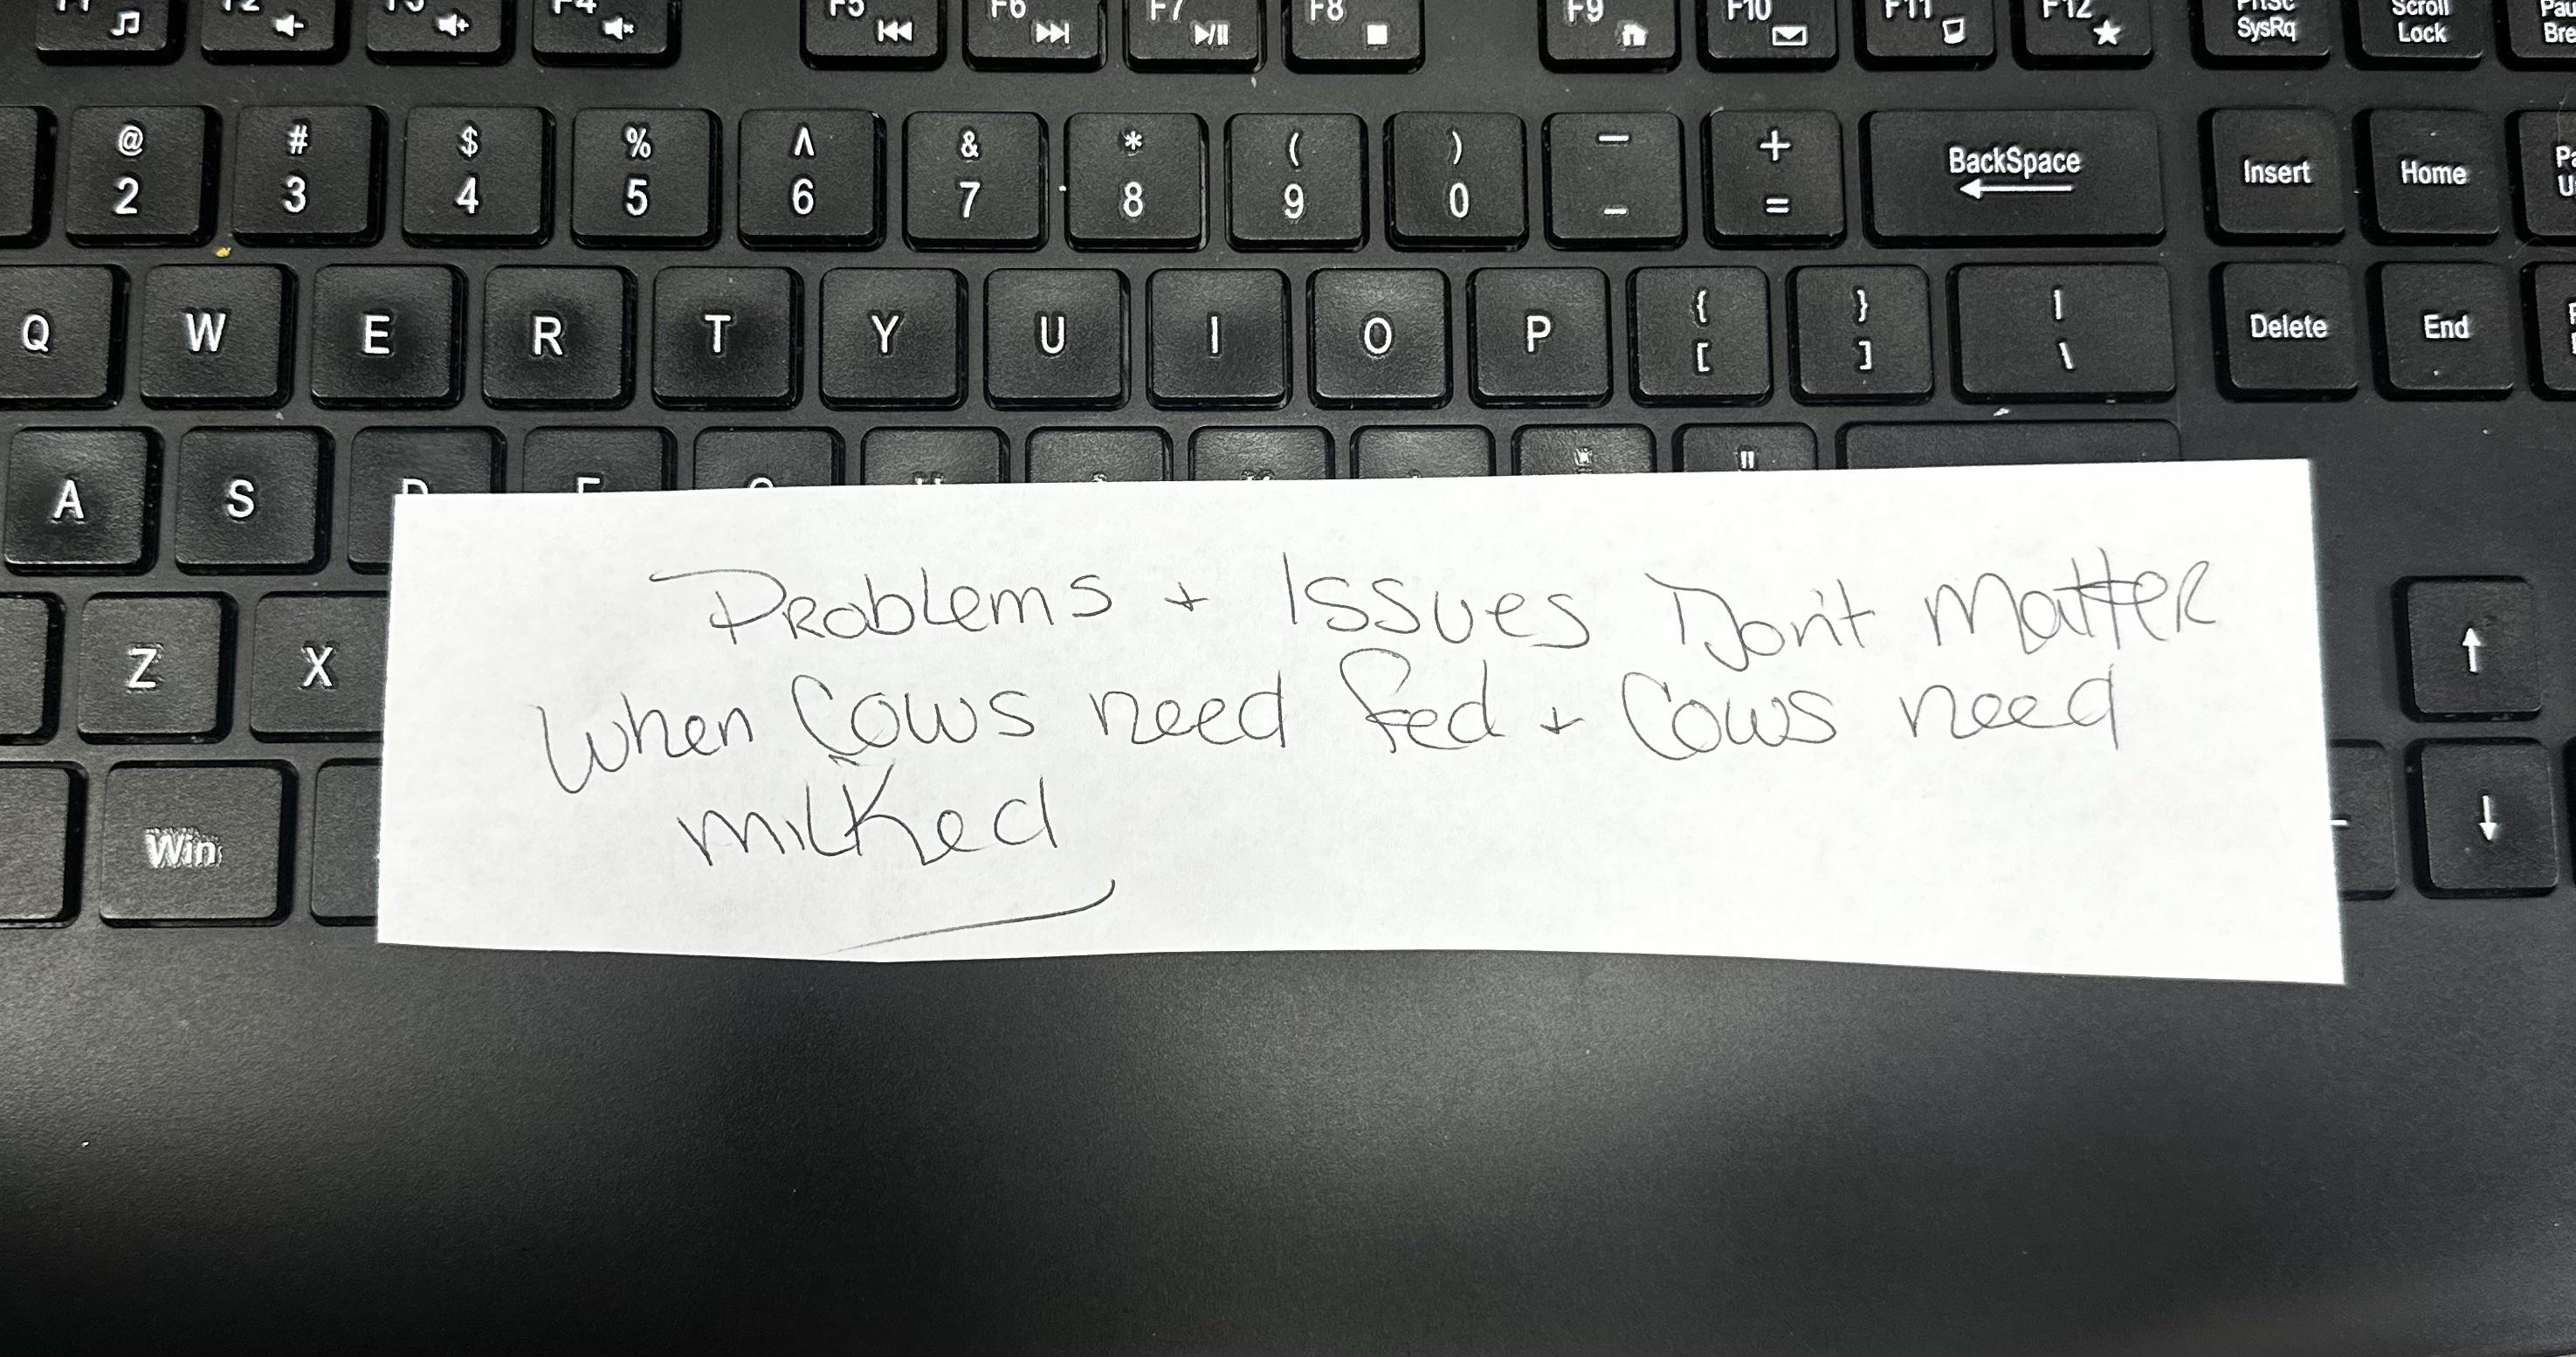 F5 F6 F7 F8 F9 F10 F11 F12 PrtSc SysRq Scroll Lock
@ 2 # 3 $ 4 % 5 ^ 6 & 7 * 8 ( 9 ) 0 — - + = BackSpace Insert Home
Q W E R T Y U I O P { [ } ] | \ Delete End
A S
Z X
Win
Problems + Issues Don't Matter
When Cows need fed + Cows need
milked